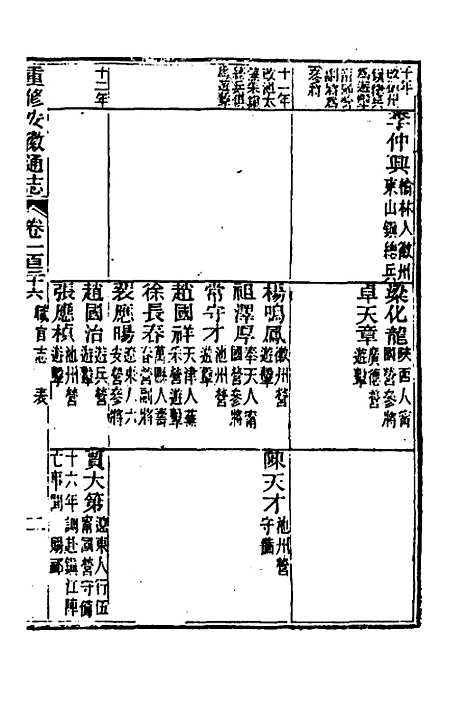 十年
改徽州
鎮總兵
爲遊擊
甯國營
副將爲
參將
李仲興 榆林人徽州
東山鎮總兵
梁化龍 陝西人甯
國營參將
卓天章 廣德營
遊擊
十一年
改池太
總兵
爲遊擊
楊鳴鳳 徽州營
遊擊
祖澤厚 奉天人甯
國營參將
常守才 池州營
遊擊
趙國祥 天津人蕪
采營遊擊
徐長春 萬縣人壽
春營副將
裴應暘 遼東人六
安營參將
陳天才 池州營
守備
十二年
趙國治 遊兵營
遊擊
張應楨 池州營
遊擊
賈大第 遼東人行伍
甯國營守備
十六年調赴鎮江陣
亡事聞 賜卹
重修安徽通志 卷一百二十六 職官志 表 二